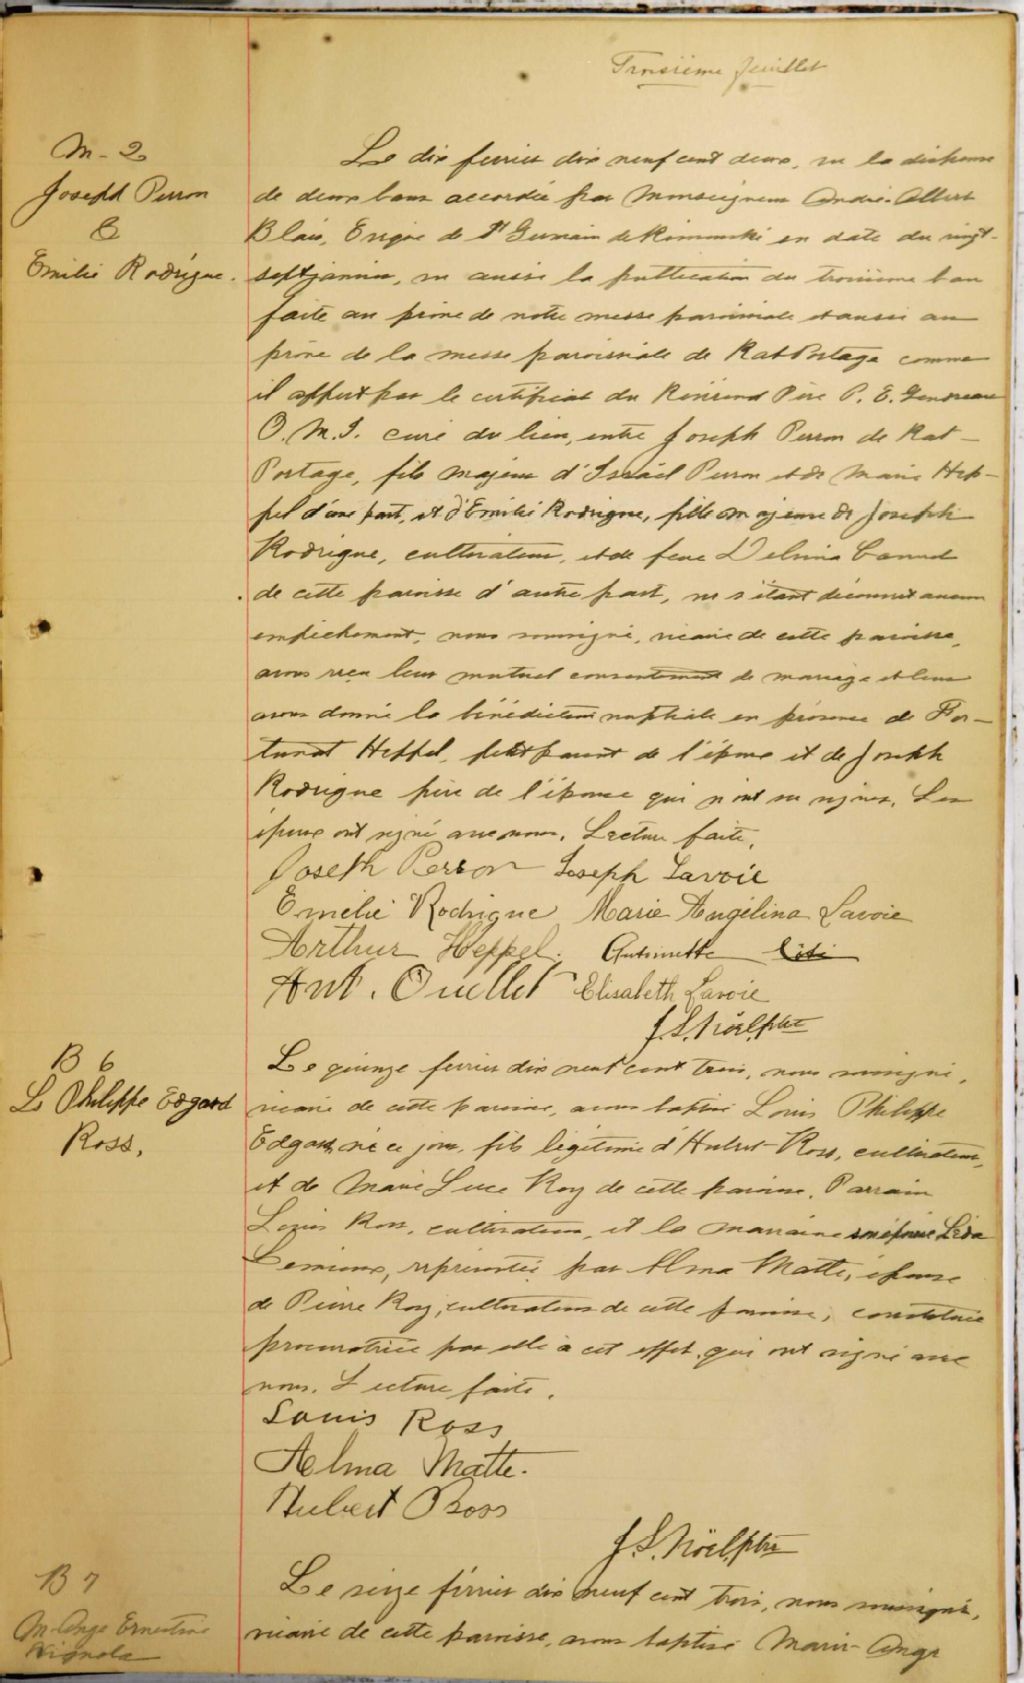 Troisième feuillet
M-2
Joseph Perron
&
Emilie Rodrigue.
Le dix février dix neuf cent deux, vu la dispense
de deux bans accordée par Monseigneur André-Albert
Blais, Evêque de St Germain de Rimouski en date du vingt-
sept janvier, vu aussi la publication du troisième ban
faite au prône de notre messe paroissiale et aussi au
prône de la messe paroissiale de Rat Portage comme
il appert par le certificat du Révérend Père P. E. Gendreau
O. M. I. curé du lieu, entre Joseph Perron de Rat-
Portage, fils majeur d'Israël Perron et de Marie Hep-
pel d'une part, et d'Emilie Rodrigue, fille majeure de Joseph
Rodrigue, cultivateur, et de feue Delvina
de cette paroisse d'autre part, ne s'étant découvert aucun
empêchement, nous soussigné, vicaire de cette paroisse,
avons reçu leur mutuel consentement de mariage et leur
avons donné la bénédiction nuptiale en présence de For-
tunat Heppel, parent de l'époux et de Joseph
Rodrigue père de l'épouse qui n'ont su signer. Les
époux ont signé avec nous. Lecture faite.
Joseph Perron Joseph Lavoie
Emelie Rodrigue Marie Angélina Lavoie
Arthur Heppel. Antoinette
Ant. Ouellet Elisabeth Lavoie
J. S. Nöel, ptre
B 6
Ls Philippe Edgard
Ross.
Le quinze février dix neuf cent trois, nous soussigné,
vicaire de cette paroisse, avons baptisé Louis Philippe
Edgard, né ce jour, fils légitime d'Hubert Ross, cultivateur,
et de Marie Luce Roy de cette paroisse. Parrain
Louis Ross, cultivateur, et la marraine son épouse Léda
Lemieux, représentée par Alma Matte, épouse
de Pierre Roy, cultivateur de cette paroisse, constituée
procuratrice par elle à cet effet, qui ont signé avec
nous. Lecture faite.
Louis Ross
Aelma Matte.
Hubert Ross
J. S. Nöel, ptre
B 7
M-Ange Ernestine
Vignola
Le seize février dix neuf cent trois, nous soussigné,
vicaire de cette paroisse, avons baptisé Marie-Ange